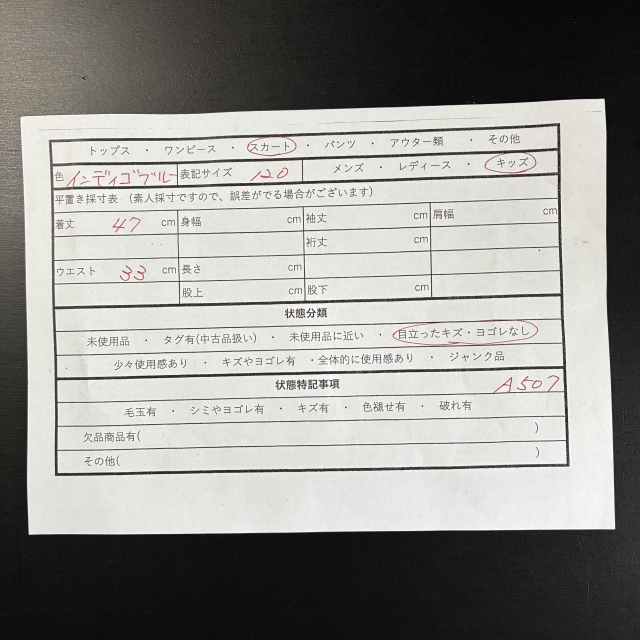 トップス ・ ワンピース ・ スカート ・ パンツ ・ アウター類 ・ その他
色 インディゴブルー 表記サイズ 120 メンズ ・ レディース ・ キッズ
平置き採寸表 (素人採寸ですので、誤差がでる場合がございます)
着丈 47 cm 身幅 cm 袖丈 cm 肩幅 cm
裄丈 cm
ウエスト 33 cm 長さ cm
股上 cm 股下 cm
状態分類
未使用品 ・ タグ有(中古品扱い) ・ 未使用品に近い ・ 目立ったキズ・ヨゴレなし
少々使用感あり ・ キズやヨゴレ有 ・全体的に使用感あり ・ ジャンク品
状態特記事項 A507
毛玉有 ・ シミやヨゴレ有 ・ キズ有 ・ 色褪せ有 ・ 破れ有
欠品商品有( )
その他( )